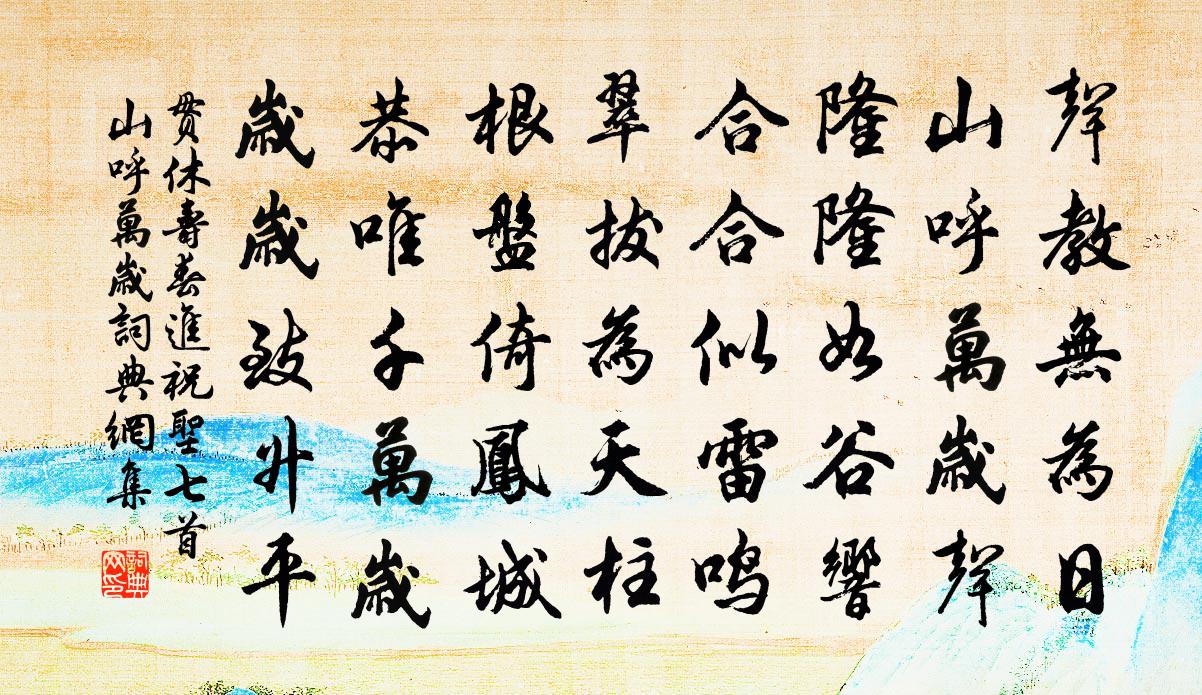 聲教無為日
山呼萬歲聲
隆隆如谷響
合合似雷鳴
翠拔為天柱
根盤倚鳳城
恭唯千萬歲
歲歲致升平
貫休壽春進祝聖七首
山呼萬歲詞典網集
詞典
网印